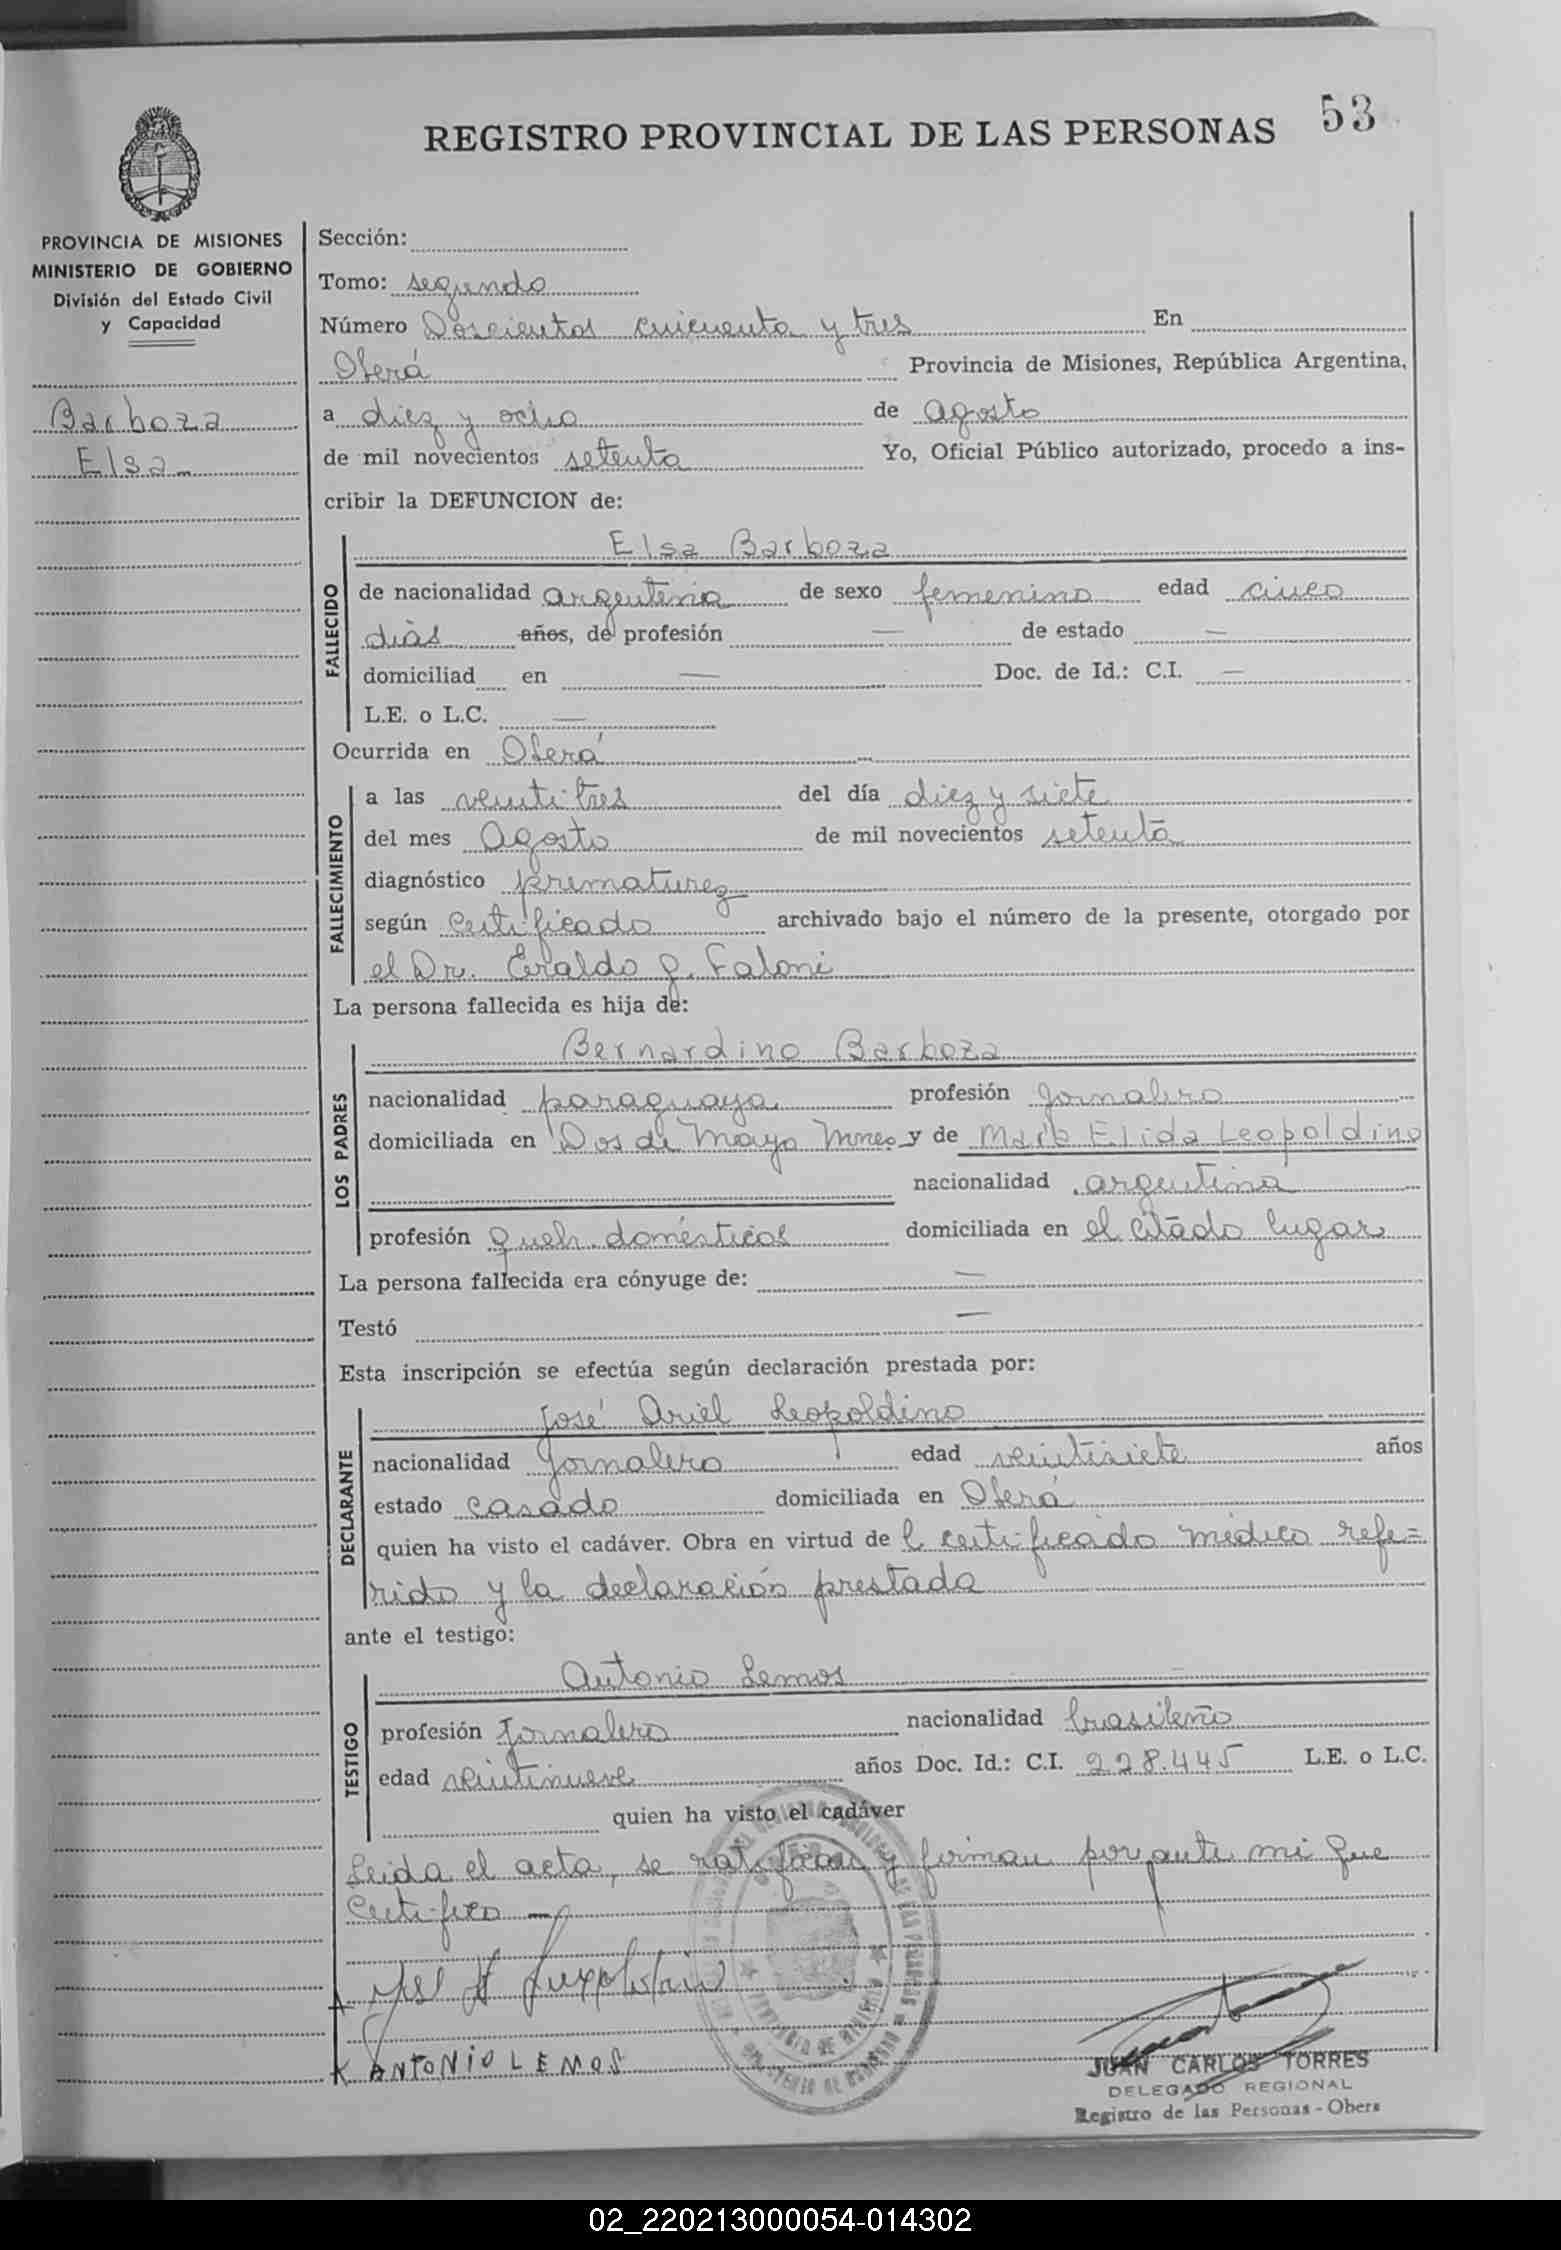 53
REGISTRO PROVINCIAL DE LAS PERSONAS
PROVINCIA DE MISIONES
MINISTERIO DE GOBIERNO
División del Estado Civil
y Capacidad
Barboza
Elsa
Sección:
Tomo: segundo
Número Doscientos cincuenta y tres En
Oberá Provincia de Misiones, República Argentina,
a diez y ocho de agosto
de mil novecientos setenta Yo, Oficial Público autorizado, procedo a ins-
cribir la DEFUNCION de:
FALLECIDO
Elsa Barboza
de nacionalidad argentina de sexo femenino edad cinco
días años, de profesión — de estado —
domiciliad en — Doc. de Id.: C.I. —
L.E. o L.C. —
Ocurrida en Oberá
FALLECIMIENTO
a las veintitres del día diez y siete
del mes Agosto de mil novecientos setenta
diagnóstico prematurez
según certificado archivado bajo el número de la presente, otorgado por
el Dr. Eraldo J. Faloni
La persona fallecida es hija de:
LOS PADRES
Bernardino Barboza
nacionalidad paraguaya profesión jornalero
domiciliada en Dos de Mayo Mnes y de María Elida Leopoldino
nacionalidad argentina
profesión queh. domésticos domiciliada en el citado lugar
La persona fallecida era cónyuge de: —
Testó —
Esta inscripción se efectúa según declaración prestada por:
DECLARANTE
José Ariel Leopoldino
nacionalidad jornalero edad veintisiete años
estado casado domiciliada en Oberá
quien ha visto el cadáver. Obra en virtud de l certificado médico refe=
rido y la declaración prestada
ante el testigo:
TESTIGO
Antonio Lemos
profesión jornalero nacionalidad brasileño
edad veintinueve años Doc. Id.: C.I. 228.445 L.E. o L.C.
quien ha visto el cadáver
Leida el acta, se ratifican y firman por ante mi que
Certifico —
ANTONIO LEMOS
JUAN CARLOS TORRES
DELEGADO REGIONAL
Registro de las Personas - Obera
02_220213000054-014302